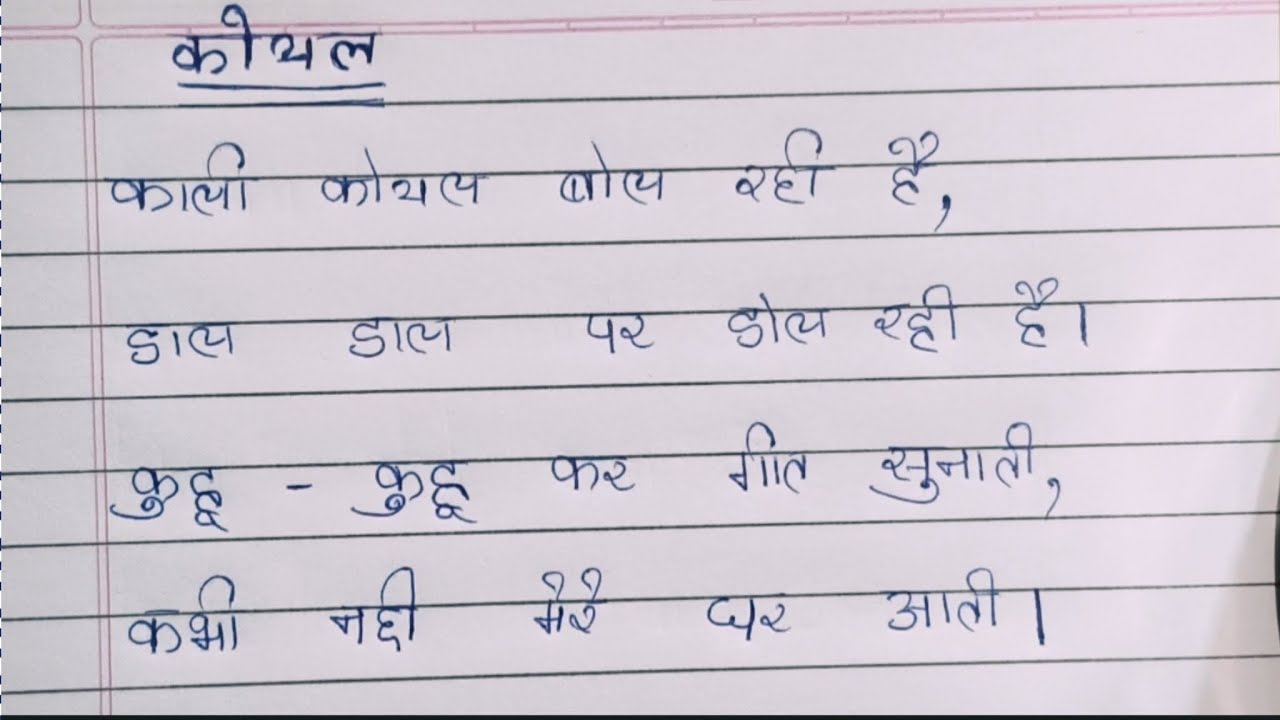 कोयल
काली कोयल बोल रही है,
डाल डाल पर डोल रही है।
कुहू - कुहू कर गीत सुनाती,
कभी नही मेरे घर आती।